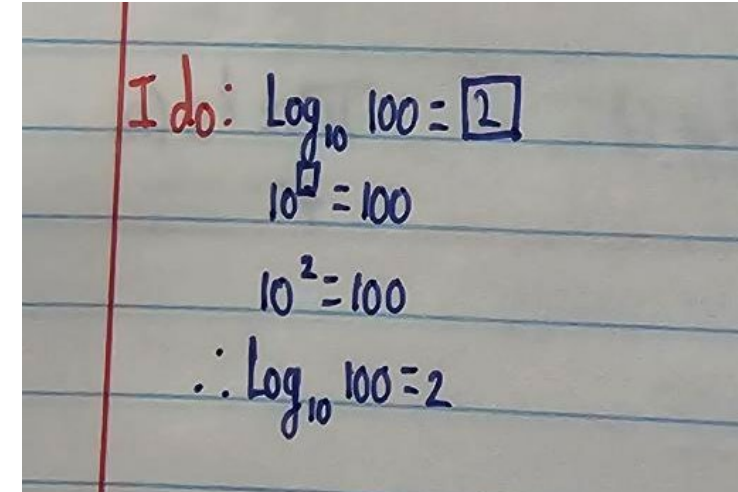 I do: Log₁₀ 100 = 2
10^□ = 100
10² = 100
∴ Log₁₀ 100 = 2